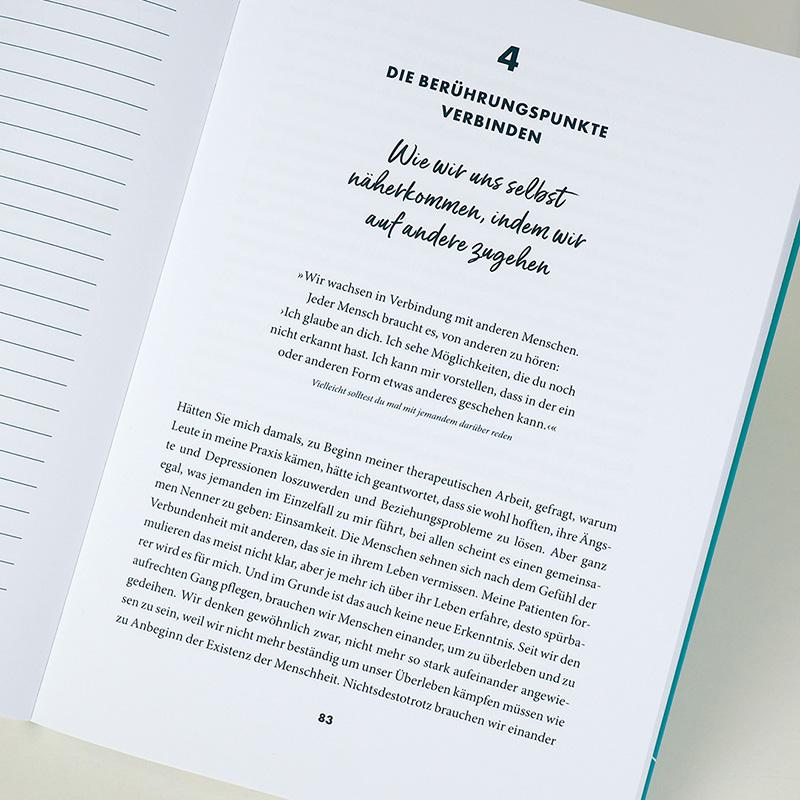 4
DIE BERÜHRUNGSPUNKTE
VERBINDEN
Wie wir uns selbst
näherkommen, indem wir
auf andere zugehen
»Wir wachsen in Verbindung mit anderen Menschen.
Jeder Mensch braucht es, von anderen zu hören:
›Ich glaube an dich. Ich sehe Möglichkeiten, die du noch
nicht erkannt hast. Ich kann mir vorstellen, dass in der ein
oder anderen Form etwas anderes geschehen kann.‹«
Vielleicht solltest du mal mit jemandem darüber reden
Hätten Sie mich damals, zu Beginn meiner therapeutischen Arbeit, gefragt, warum
Leute in meine Praxis kämen, hätte ich geantwortet, dass sie wohl hofften, ihre Ängs-
te und Depressionen loszuwerden und Beziehungsprobleme zu lösen. Aber ganz
egal, was jemanden im Einzelfall zu mir führt, bei allen scheint es einen gemeinsa-
men Nenner zu geben: Einsamkeit. Die Menschen sehnen sich nach dem Gefühl der
Verbundenheit mit anderen, das sie in ihrem Leben vermissen. Meine Patienten for-
mulieren das meist nicht klar, aber je mehr ich über ihr Leben erfahre, desto spürba-
rer wird es für mich. Und im Grunde ist das auch keine neue Erkenntnis. Seit wir den
aufrechten Gang pflegen, brauchen wir Menschen einander, um zu überleben und zu
gedeihen. Wir denken gewöhnlich zwar, nicht mehr so stark aufeinander angewie-
sen zu sein, weil wir nicht mehr beständig um unser Überleben kämpfen müssen wie
zu Anbeginn der Existenz der Menschheit. Nichtsdestotrotz brauchen wir einander
83